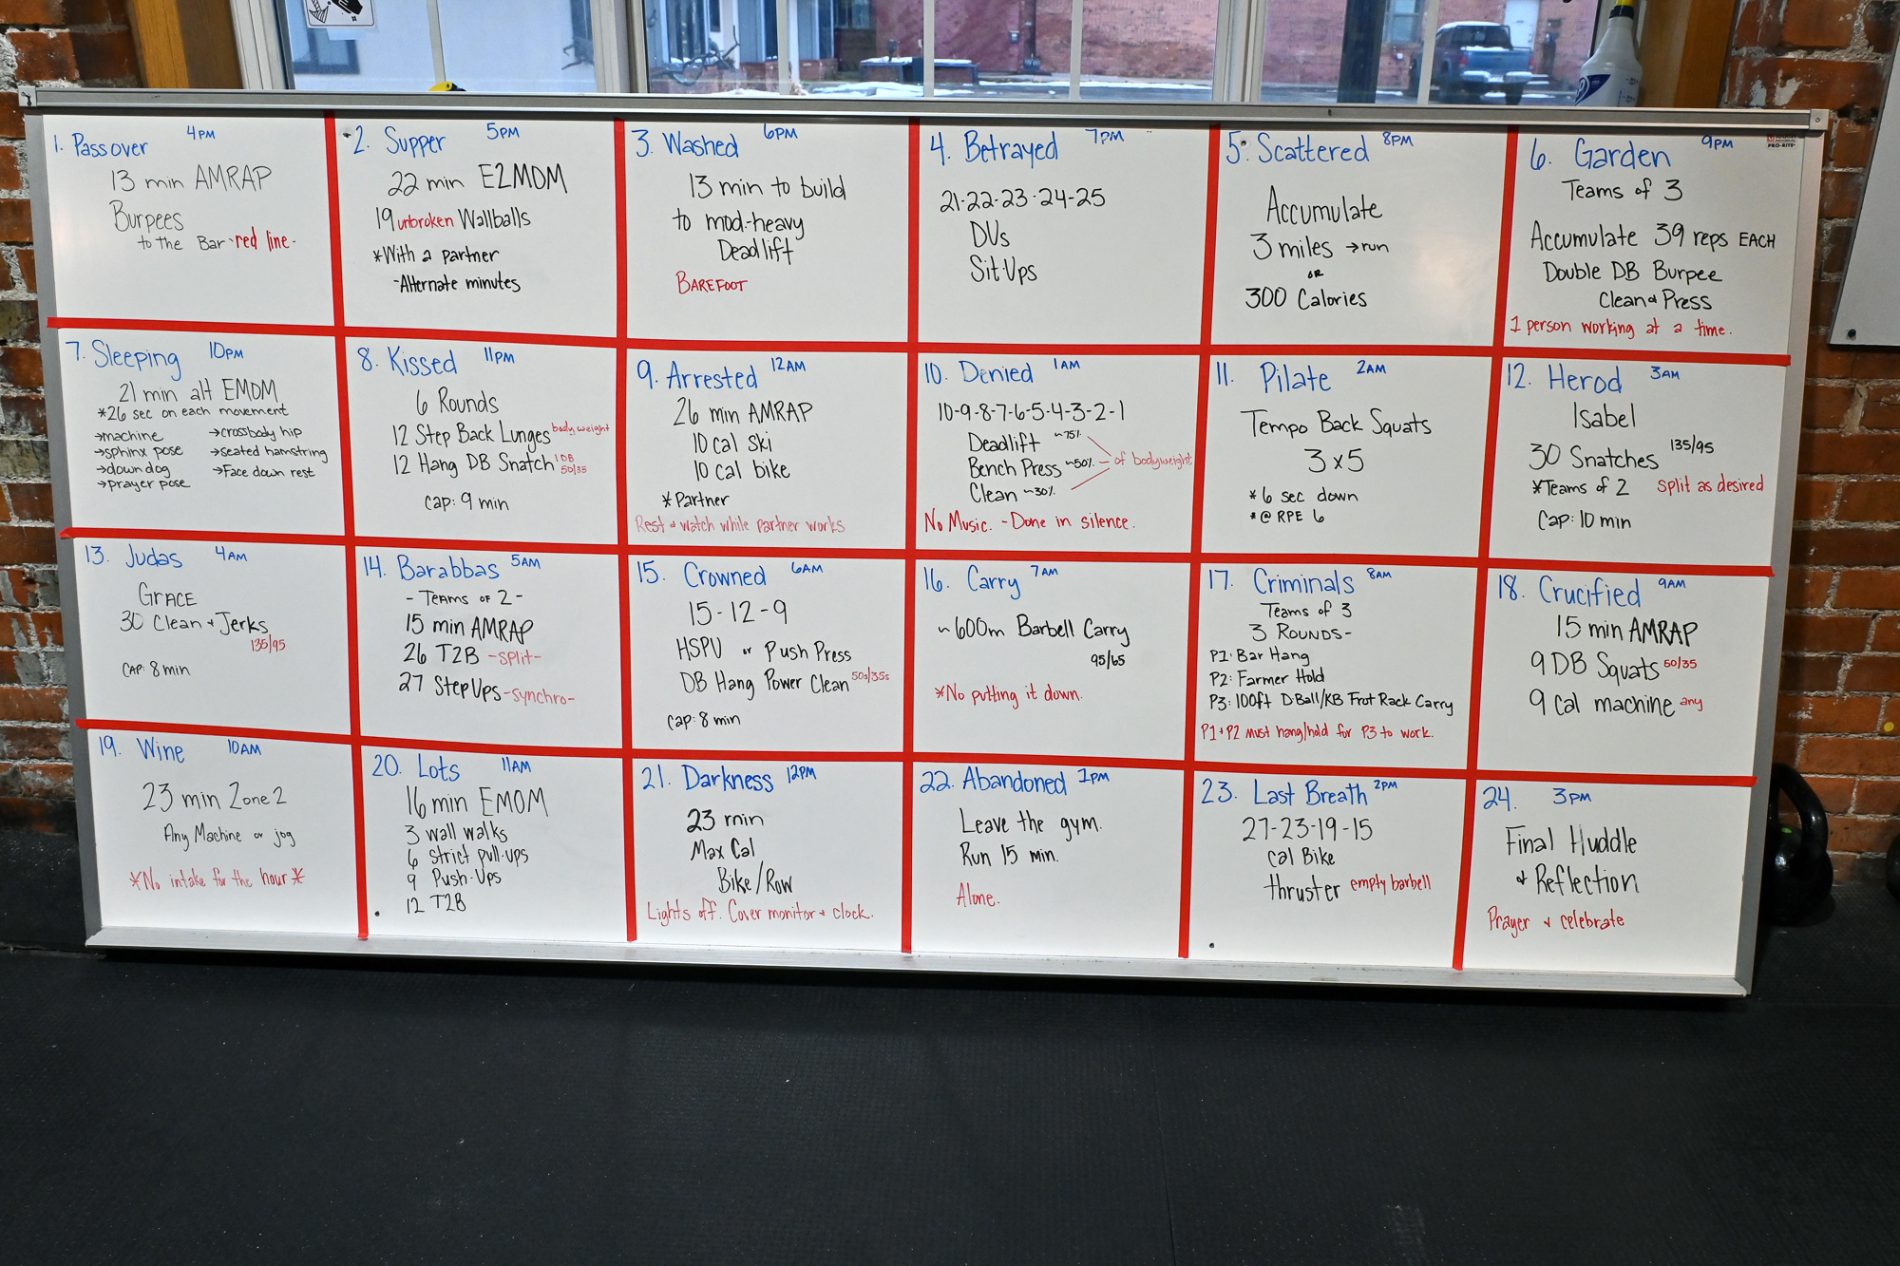 1. Passover 4PM
13 min AMRAP
Burpees
to the Bar -red line-
2. Supper 5PM
22 min E2MOM
19 unbroken Wallballs
*With a partner
-Alternate minutes
3. Washed 6PM
13 min to build
to mod-heavy
Deadlift
BAREFOOT
4. Betrayed 7PM
21-22-23-24-25
DUs
Sit-Ups
5. Scattered 8PM
Accumulate
3 miles →run
OR
300 Calories
6. Garden 9PM
Teams of 3
Accumulate 39 reps EACH
Double DB Burpee
Clean & Press
1 person working at a time.
7. Sleeping 10PM
21 min alt EMOM
*26 sec on each movement
→machine →crossbody hip
→sphinx pose →seated hamstring
→down dog →Face down rest
→prayer pose
8. Kissed 11PM
6 Rounds
12 Step Back Lunges bodyweight
12 Hang DB Snatch 1DB 50/35
Cap: 9 min
9. Arrested 12AM
26 min AMRAP
10 cal ski
10 cal bike
*Partner
Rest & watch while partner works
10. Denied 1AM
10-9-8-7-6-5-4-3-2-1
Deadlift ~75%
Bench Press ~50% - of bodyweight
Clean ~30%
No Music. - Done in silence.
11. Pilate 2AM
Tempo Back Squats
3x5
*6 sec down
*@ RPE 6
12. Herod 3AM
Isabel
30 Snatches 135/95
*Teams of 2 split as desired
Cap: 10 min
13. Judas 4AM
GRACE
30 Clean & Jerks
135/95
CAP: 8 min
14. Barabbas 5AM
- TEAMS OF 2 -
15 min AMRAP
26 T2B -split-
27 StepUps -synchro-
15. Crowned 6AM
15-12-9
HSPU or Push Press
DB Hang Power Clean 50s/35s
Cap: 8 min
16. Carry 7AM
~600m Barbell Carry
95/65
*No putting it down.
17. Criminals 8AM
Teams of 3
3 ROUNDS-
P1: Bar Hang
P2: Farmer Hold
P3: 100ft DBall/KB Frot Rack Carry
P1+P2 must hang/hold for P3 to work.
18. Crucified 9AM
15 min AMRAP
9 DB Squats 50/35
9 Cal machine any
19. Wine 10AM
23 min Zone 2
Any Machine or jog
*No intake for the hour*
20. Lots 11AM
16 min EMOM
3 wall walks
6 strict pull-ups
9 Push-Ups
12 T2B
21. Darkness 12PM
23 min
Max Cal
Bike/Row
Lights off. Cover monitor & clock.
22. Abandoned 1PM
Leave the gym.
Run 15 min.
Alone.
23. Last Breath 2PM
27-23-19-15
Cal Bike
thruster empty barbell
24. 3PM
Final Huddle
& Reflection
Prayer & celebrate